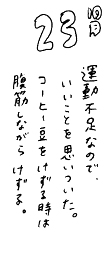 23日
運動不足なので、
いいことを思いついた。
コーヒー豆をけずる時は
腹筋しながら けずる。